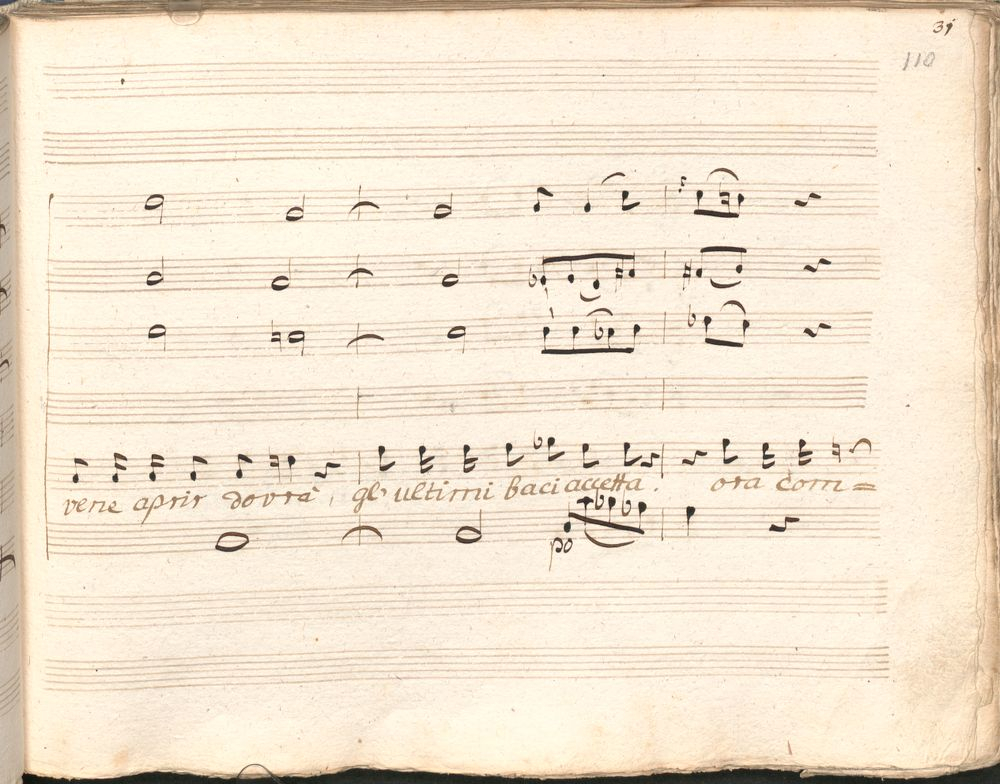 31
110
vene aprir dovrà, gl'ultimi baci accetta. ora com=
po